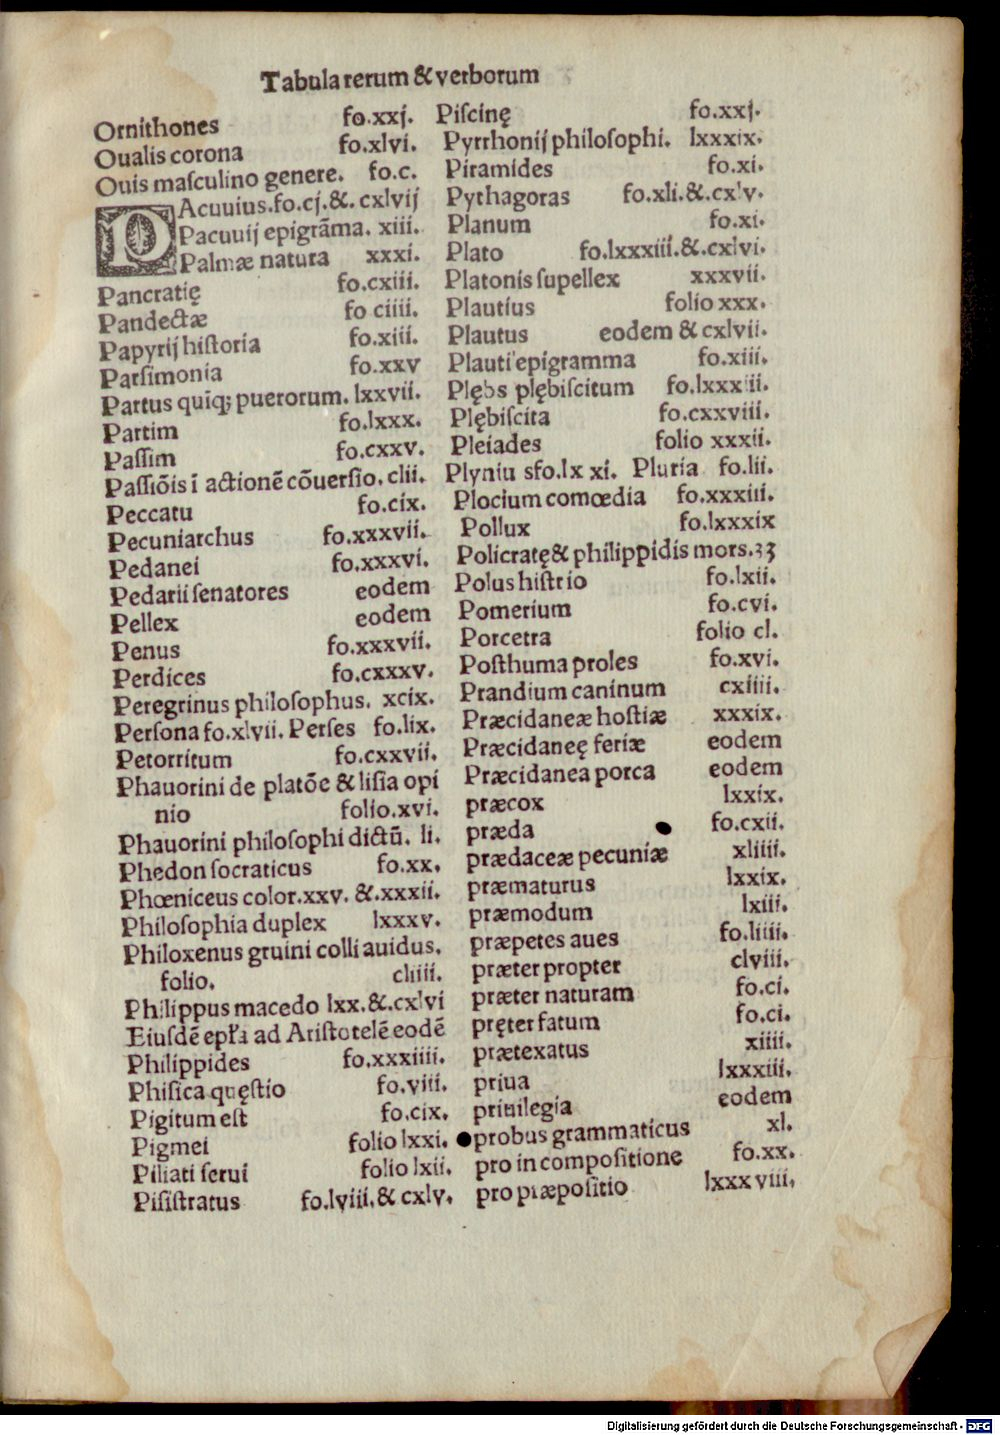 Tabula rerum & verborum
Ornithones fo.xxj.
Oualis corona fo.xlvi.
Ouis maſculino genere. fo.c.
PAcuuius.fo.cj.&. cxlvij
Pacuuij epigrãma. xiii.
Palmæ natura xxxi.
Pancratię fo.cxiii.
Pandectæ fo ciiii.
Papyrij hiſtoria fo.xiii.
Parſimonia fo.xxv
Partus quiq; puerorum. lxxvii.
Partim fo.lxxx.
Paſſim fo.cxxv.
Paſſiõis ĩ actionẽ cõuerſio. clii.
Peccatu fo.cix.
Pecuniarchus fo.xxxvii.
Pedanei fo.xxxvi.
Pedarii ſenatores eodem
Pellex eodem
Penus fo.xxxvii.
Perdices fo.cxxxv.
Peregrinus philoſophus. xcix.
Perſona fo.xlvii. Perſes fo.lix.
Petorritum fo.cxxvii.
Phauorini de platõe & liſia opi
nio folio.xvi.
Phauorini philoſophi dictũ. li.
Phedon ſocraticus fo.xx.
Phœniceus color.xxv. &.xxxii.
Philoſophia duplex lxxxv.
Philoxenus gruini colli auidus.
folio. cliiii.
Philippus macedo lxx.&.cxlvi
Eiuſdẽ epłа ad Ariſtotelẽ eodẽ
Philippides fo.xxxiiii.
Phiſica quęſtio fo.viii.
Pigitum eſt fo.cix.
Pigmei folio lxxi.
Piliati ſerui folio lxii.
Piſiſtratus fo.lviii.& cxlv.
Piſcinę fo.xxj.
Pyrrhonij philoſophi. lxxxix.
Piramides fo.xi.
Pythagoras fo.xli.&.cxlv.
Planum fo.xi.
Plato fo.lxxxiii.&.cxlvi.
Platonis ſupellex xxxvii.
Plautius folio xxx.
Plautus eodem & cxlvii.
Plauti epigramma fo.xiii.
Plębs plębiſcitum fo.lxxxiii.
Plębiſcita fo.cxxviii.
Pleiades folio xxxii.
Plyniu sfo.lx xi. Pluria fo.lii.
Plocium comœdia fo.xxxiii.
Pollux fo.lxxxix
Policratę & philippidis mors.33
Polus hiſtrio fo.lxii.
Pomerium fo.cvi.
Porcetra folio cl.
Poſthuma proles fo.xvi.
Prandium caninum cxiiii.
Præcidaneæ hoſtiæ xxxix.
Præcidaneę feriæ eodem
Præcidanea porca eodem
præcox lxxix.
præda fo.cxii.
prædaceæ pecuniæ xliiii.
præmaturus lxxix.
præmodum lxiii.
præpetes aues fo.liiii.
præter propter clviii.
præter naturam fo.ci.
pręter fatum fo.ci.
prætexatus xiiii.
priua lxxxiii.
priuilegia eodem
probus grammaticus xl.
pro in compoſitione fo.xx.
pro præpoſitio lxxxviii.
Digitalisierung gefördert durch die Deutsche Forschungsgemeinschaft - DFG